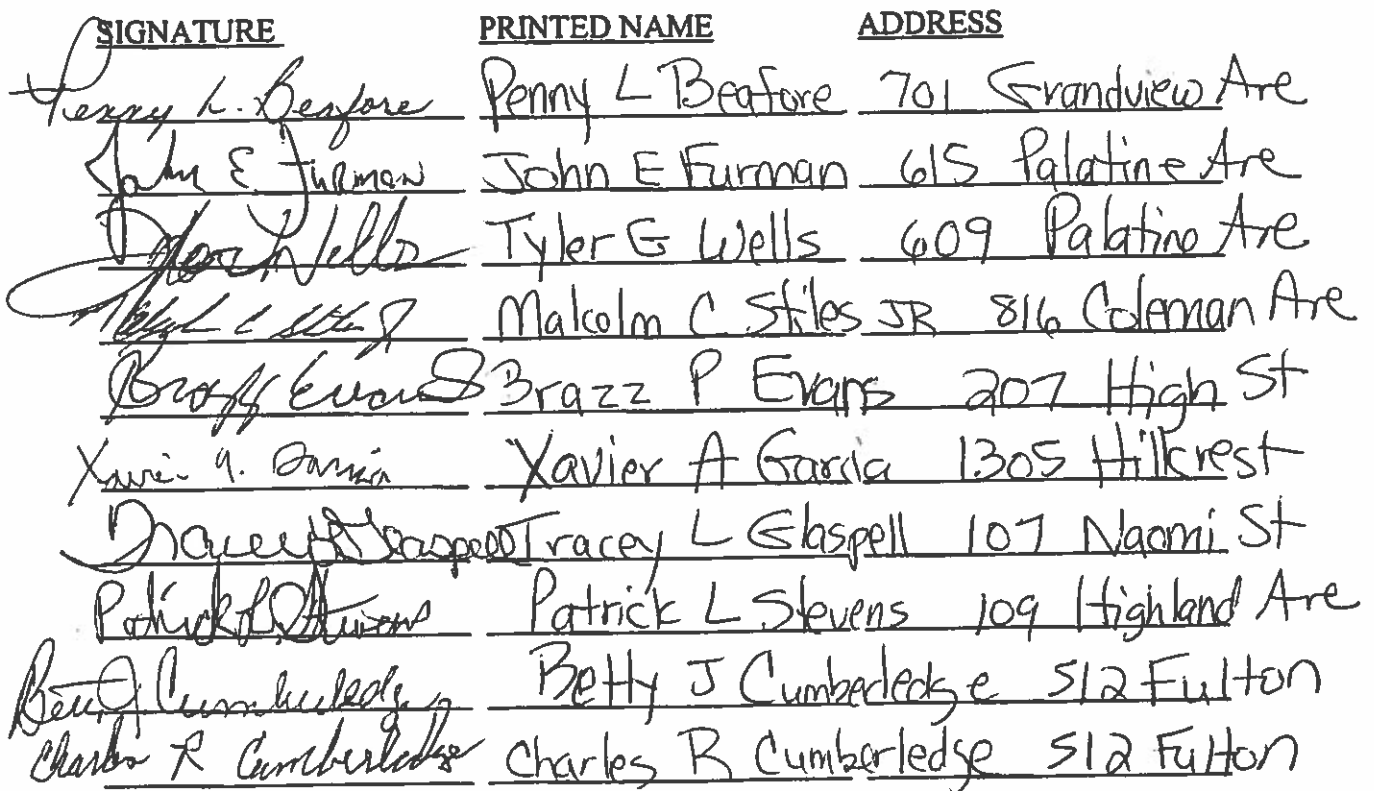 SIGNATURE PRINTED NAME ADDRESS
Penny L. Beafore Penny L Beafore 701 Grandview Ave
John E. Furman John E Furman 615 Palatine Ave
Tyler Wells Tyler G Wells 609 Palatine Ave
Malcolm C Stiles JR 816 Coleman Ave
Brazz Evans Brazz P Evans 207 High St
Xavier A. Garcia Xavier A Garcia 1305 Hillcrest
Tracey L Glaspell Tracey L Glaspell 107 Naomi St
Patrick L Stevens Patrick L Stevens 109 Highland Ave
Betty J Cumberledge Betty J Cumberledge 512 Fulton
Charles R Cumberledge Charles R Cumberledge 512 Fulton